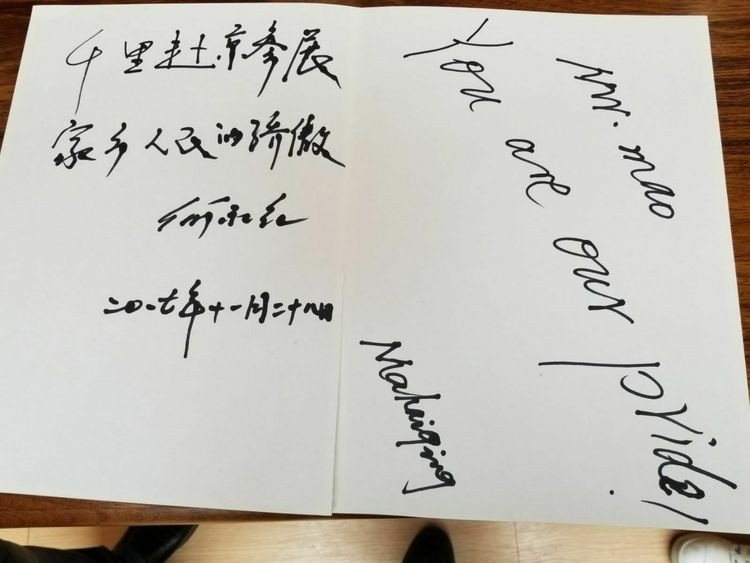 千里赴京参展
家乡人民的骄傲
二〇一七年十一月二十八日
Mr. mao
You are our pride!
Mahaiqing